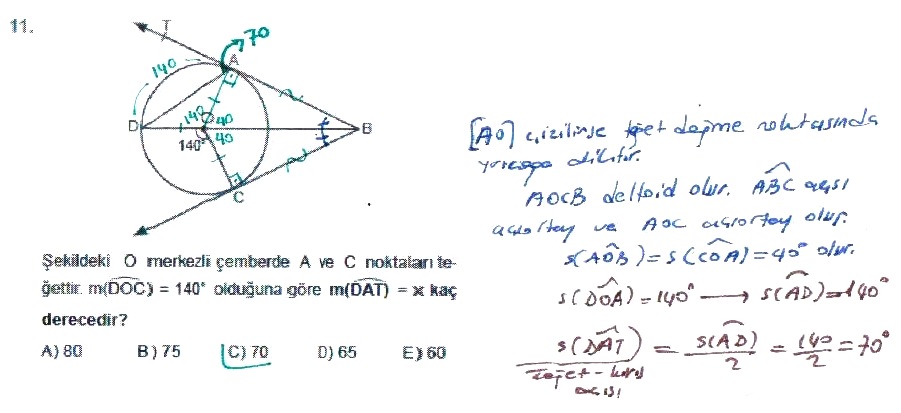 11.
T
70
A
140
140
40
40
D
O
B
140°
C
Şekildeki O merkezli çemberde A ve C noktaları te-
ğettir. m(DOC) = 140° olduğuna göre m(DAT) = x kaç
derecedir?
A) 80 B) 75 C) 70 D) 65 E) 60
[AO] çizilirse teğet değme noktasında
yarıçapa diktir.
AOCB deltoid olur. ABC açısı
açıortay ve AOC açıortay olur.
s(AOB) = s(COA) = 40° olur.
s(DOA) = 140° → s(AD) = 140°
s(DAT) = s(AD)/2 = 140/2 = 70°
teğet-kiriş
açısı